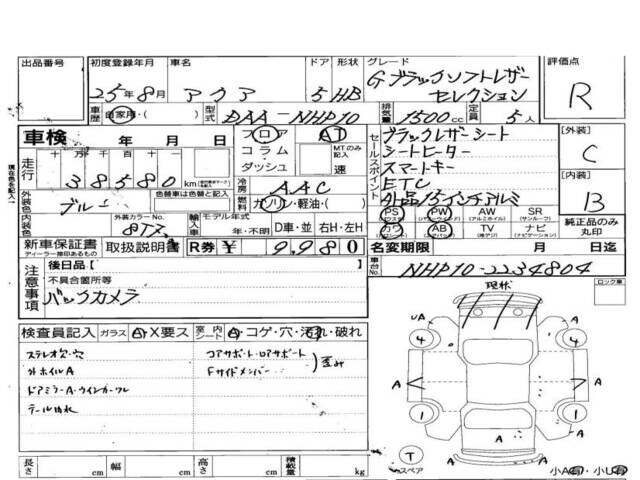 出品番号 初度登録年月 車名 ドア 形状 グレード 評価点
25年8月 アクア 5 HB Gブラックソフトレザー
セレクション
R
車歴 自家用・( ) 型式 DAA-NHP10 排気量 1500cc 定員 5人
車検 年 月 日 フロア AT
コラム・ MTのみ記入
ダッシュ 速
セールスポイント ブラックレザーシート
シートヒーター
スマートキー
ETC
外品15インチアルミ
【外装】
C
【内装】
B
現在色を記入
走行 十 万 千 百 十 一
38580 km
冷房 AAC
外装色 ブルー 色替車は色替と記入
燃料 ガソリン・軽油・( )
内装色 外装カラーNo. 8T7
輸入車 モデル年式
年・不明 D車・並 右H・左H
PS PW AW SR
(パワステ) (パワーウィンドウ) (アルミホイル) (サンルーフ)
カワ AB TV ナビ
(エアバック) (地デジ) (ナビゲーション)
純正品のみ
丸印
新車保証書 取扱説明書 R券 ¥ 9980 名変期限 月 日迄
ディーラー捺印あるもの
車台No. NHP10-2234804
注意事項
後日品【
不具合箇所等
バックカメラ
現状
ロック車
検査員記入 ガラス A・X要ス 室内シート A・コゲ・穴・汚れ・破れ
ステレオ穴・穴 コアサポート・ロアサポート
外ホイルA Fサイドメンバー 歪み
ドアミラーA・ウインカーワレ
テール
UA A
4 4
A A
1 1
A A
T
スペア
A
小A有・小U有
長さ cm 幅 cm 高さ cm 積載量 kg